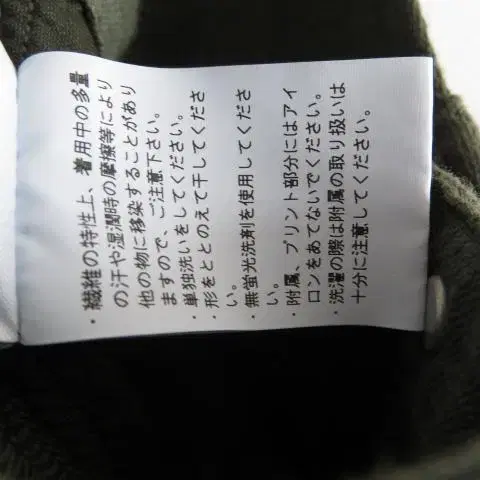 ・繊維の特性上、着用中の多量
の汗や湿潤時の摩擦等により
他の物に移染することがあり
ますので、ご注意下さい。
・単独洗いをしてください。
・形をととのえて干してくださ
い。
・無蛍光洗剤を使用してくださ
い。
・附属、プリント部分にはアイ
ロンをあてないでください。
・洗濯の際は附属の取り扱いは
十分に注意してください。